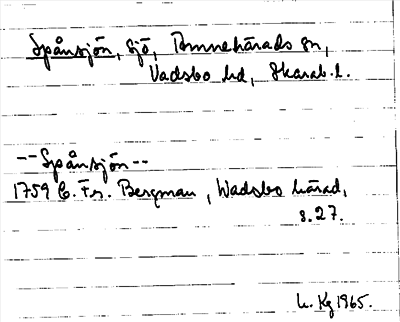 Spånsjön, sjö, Amnehärads sn,
Vadsbo hd, Skarab. l.
--Spånsjön--
1759 C. Fr. Bergman, Wadsbo härad,
s. 27.
Kg 1965.